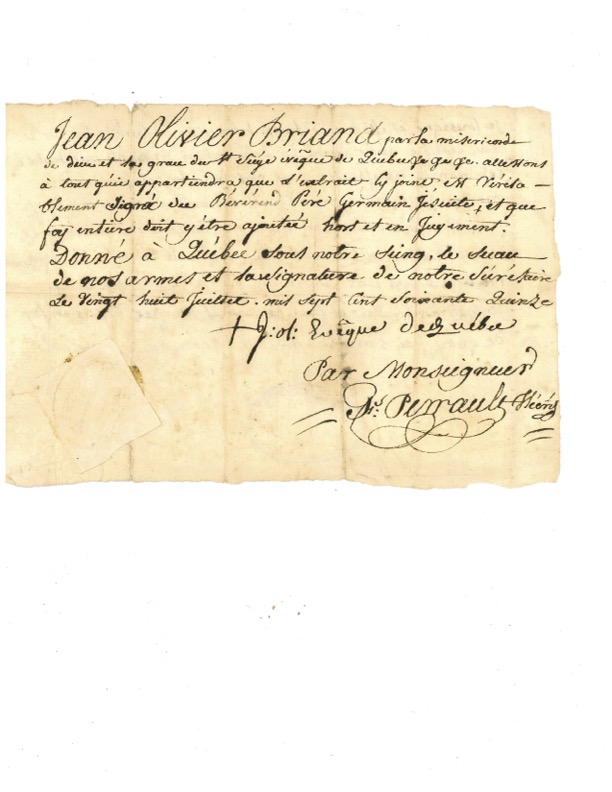 Jean Olivier Briand par la misericorde
de dieu et la grace du St Siège evêque de Quebec &c &c &c. attestons
à tout qu'ie appartiendra que L'extrait cy joint est Vérita –
blement Signé du Révérend Père Germain Jésuite, et que
foy entière doit y être ajoutée hors et en Jugement.
Donné à Québec sous notre Seing, le sceau
de nos armes et la signature de notre Sécrétaire
Le Vingt huit Juillet. mil sept Cent Soixante Quinze
+ J: ol: Evêque de Québec
Par Monseigneur
Perrault